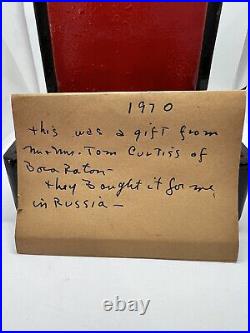 1970
this was a gift from
Mr & Mrs. Tom Curtiss of
Boca Raton -
they Bought it for me
in Russia -